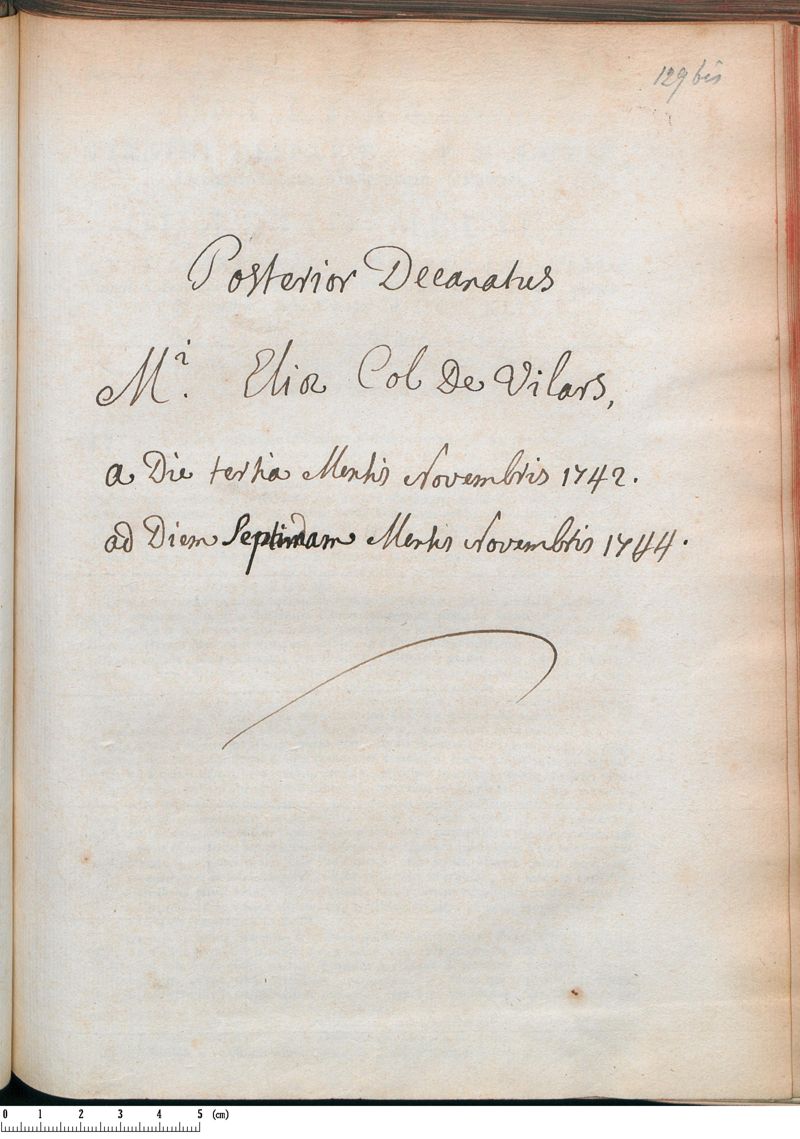 129 bis
Posterior Decanatus
M.i Eliæ Col De Vilars,
a Die tertia Mensis Novembris 1742.
ad Diem Septimam Mensis Novembris 1744.
0 1 2 3 4 5 (cm)